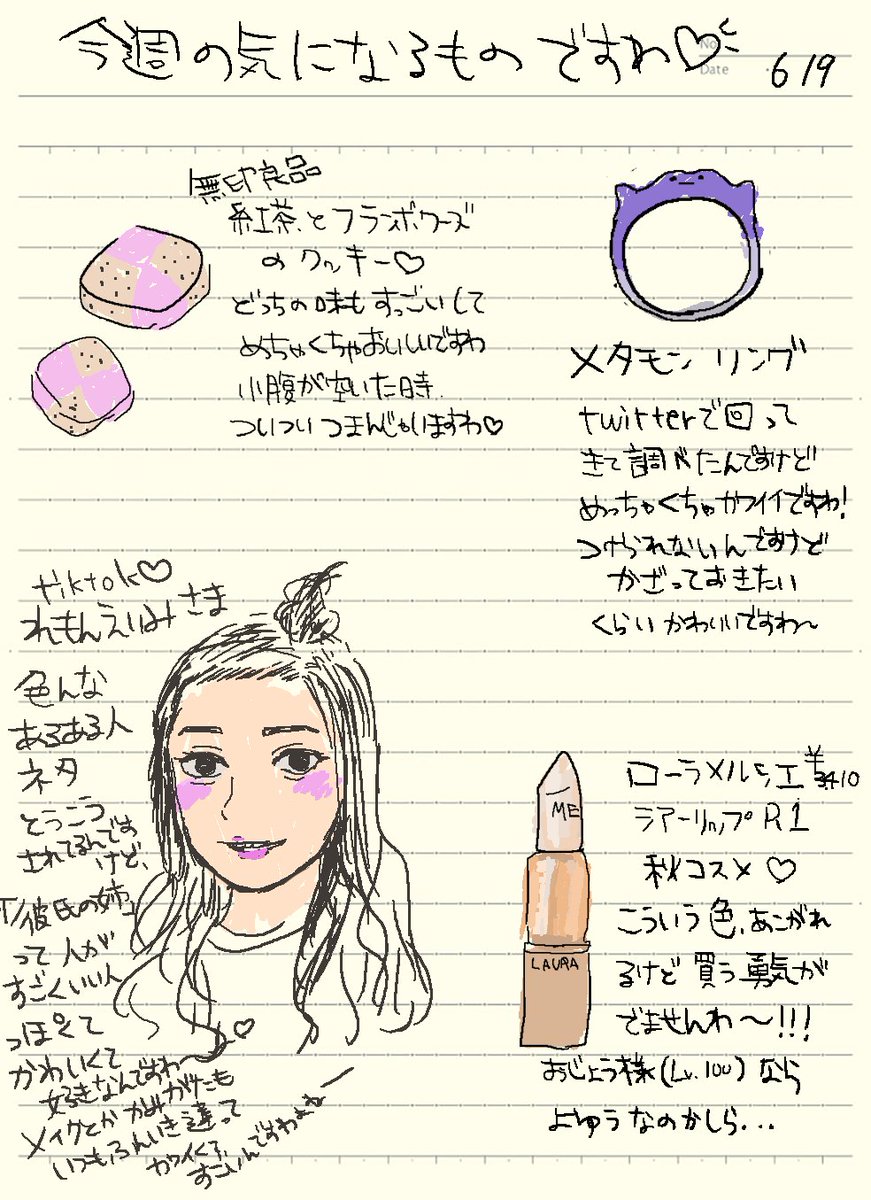 今週の気になるものですわ♡
No
Date
6/19
無印良品
紅茶とフランボワーズ
のクッキー♡
どっちの味もすっごいして
めちゃくちゃおいしいですわ
小腹が空いた時
ついついつまんじゃいますわ♡
メタモンリング
twitterで回って
きて調べたんですけど
めっちゃくちゃカワイイですわ!
つけられないんですけど
かざっておきたい
くらいかわいいですわ~
tiktok♡
れもんえいみさま
色んな
あるある人
ネタ
とうこう
されてるんです
けど、
「彼氏の姉」
って人が
すごくいい人
っぽくて
かわいくて
好きなんですわ~♡
メイクとかかみがたも
いつもふんいき違って
カワイくて、
すごいんですわよねー
ME
LAURA
ローラメルシエ ¥3410
シアーリップR1
秋コスメ♡
こういう色、あこがれ
るけど買う勇気が
でませんわ~!!!
おじょう様(Lv.100)なら
よゆうなのかしら...